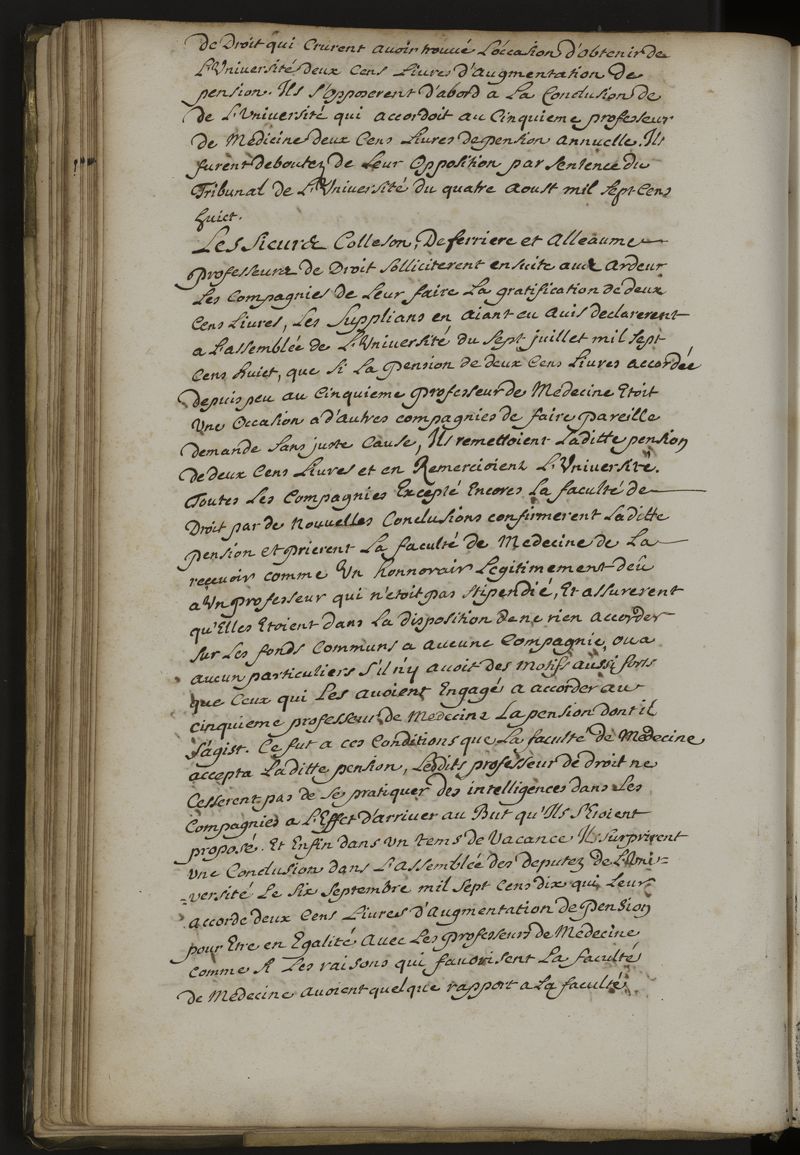 de Droit qui Crurent avoir trouvé L'occasion d'obtenir de
L'Université deux Cens Livres d'Augmentation de
pension. Ils s'opposerent d'abord a La Conclusion de
de L'Université qui accordoit au Cinquieme professeur
de Médicine deux Cens Livres de pension annuelle. Ils
furent deboutez de Leur Opposition par sentence du
Tribunal de L'Université du quatre Aoust mil sept Cens
huict.
Les Sieurs Colleson, De ferriere et Alleaume
professeurs de Droit solliciterent ensuite avec Ardeur
Les Compagnies de Leur faire La gratification de deux
Cens Livres, Les Supplians en aiant eu avis declarerent
a L'assemblée de L'Université du sept juillet mil sept
Cens huict, que si La pension de deux Cens Livres accordée
depuis peu au Cinquieme professeur de Medecine Etoit
Une Occasion a d'autres compagnies de faire pareille
demande sans juste Cause, Ils remettoient Laditte pension
de deux Cens Livres et en Remercioient L'Université.
Toutes Les Compagnies Excepté Encores La faculté de
Droit par de Nouvelles Conclusions confirmerent Laditte
pension et prierent La faculté de Medecine de La
recevoir comme Un honnorair Legitimement deû
a Un professeur qui n'etoit pas stipendié, Et assurerent
qu'Elles Etoient dans La disposition de ne rien accorder
sur Les fonds Communs a aucune Compagnie, ou a
aucun particuliers s'il n'y avoit des Motifs aussi forts
que Ceux qui Les avoient Engagé a accorder au
cinquieme professeur de Medecine La pension dont il
s'agist. Ce fut a ces Conditions que La faculté de Médecine
accepta Laditte pension, Lesdits professeur de droit ne
Cesserent pas de se pratiquer des intelligences dans Les
Compagnies a L'Effet d'arriver au But qu'Ils s'Etoient
proposé. Et Enfin dans Un tems de Vacance Ils surprirent
Une Conclusion dans L'Assemblée des deputez de L'Uni=
=versité Le six septembre mil sept Cens dix qui Leur
accorde deux Cens Livres d'Augmentation de pension
pour Etre en Egalité Avec Les professeurs de Medecine
Comme si Les raisons qui favorisent La faculté
de Médecine avoient quelque rapport a La faculté